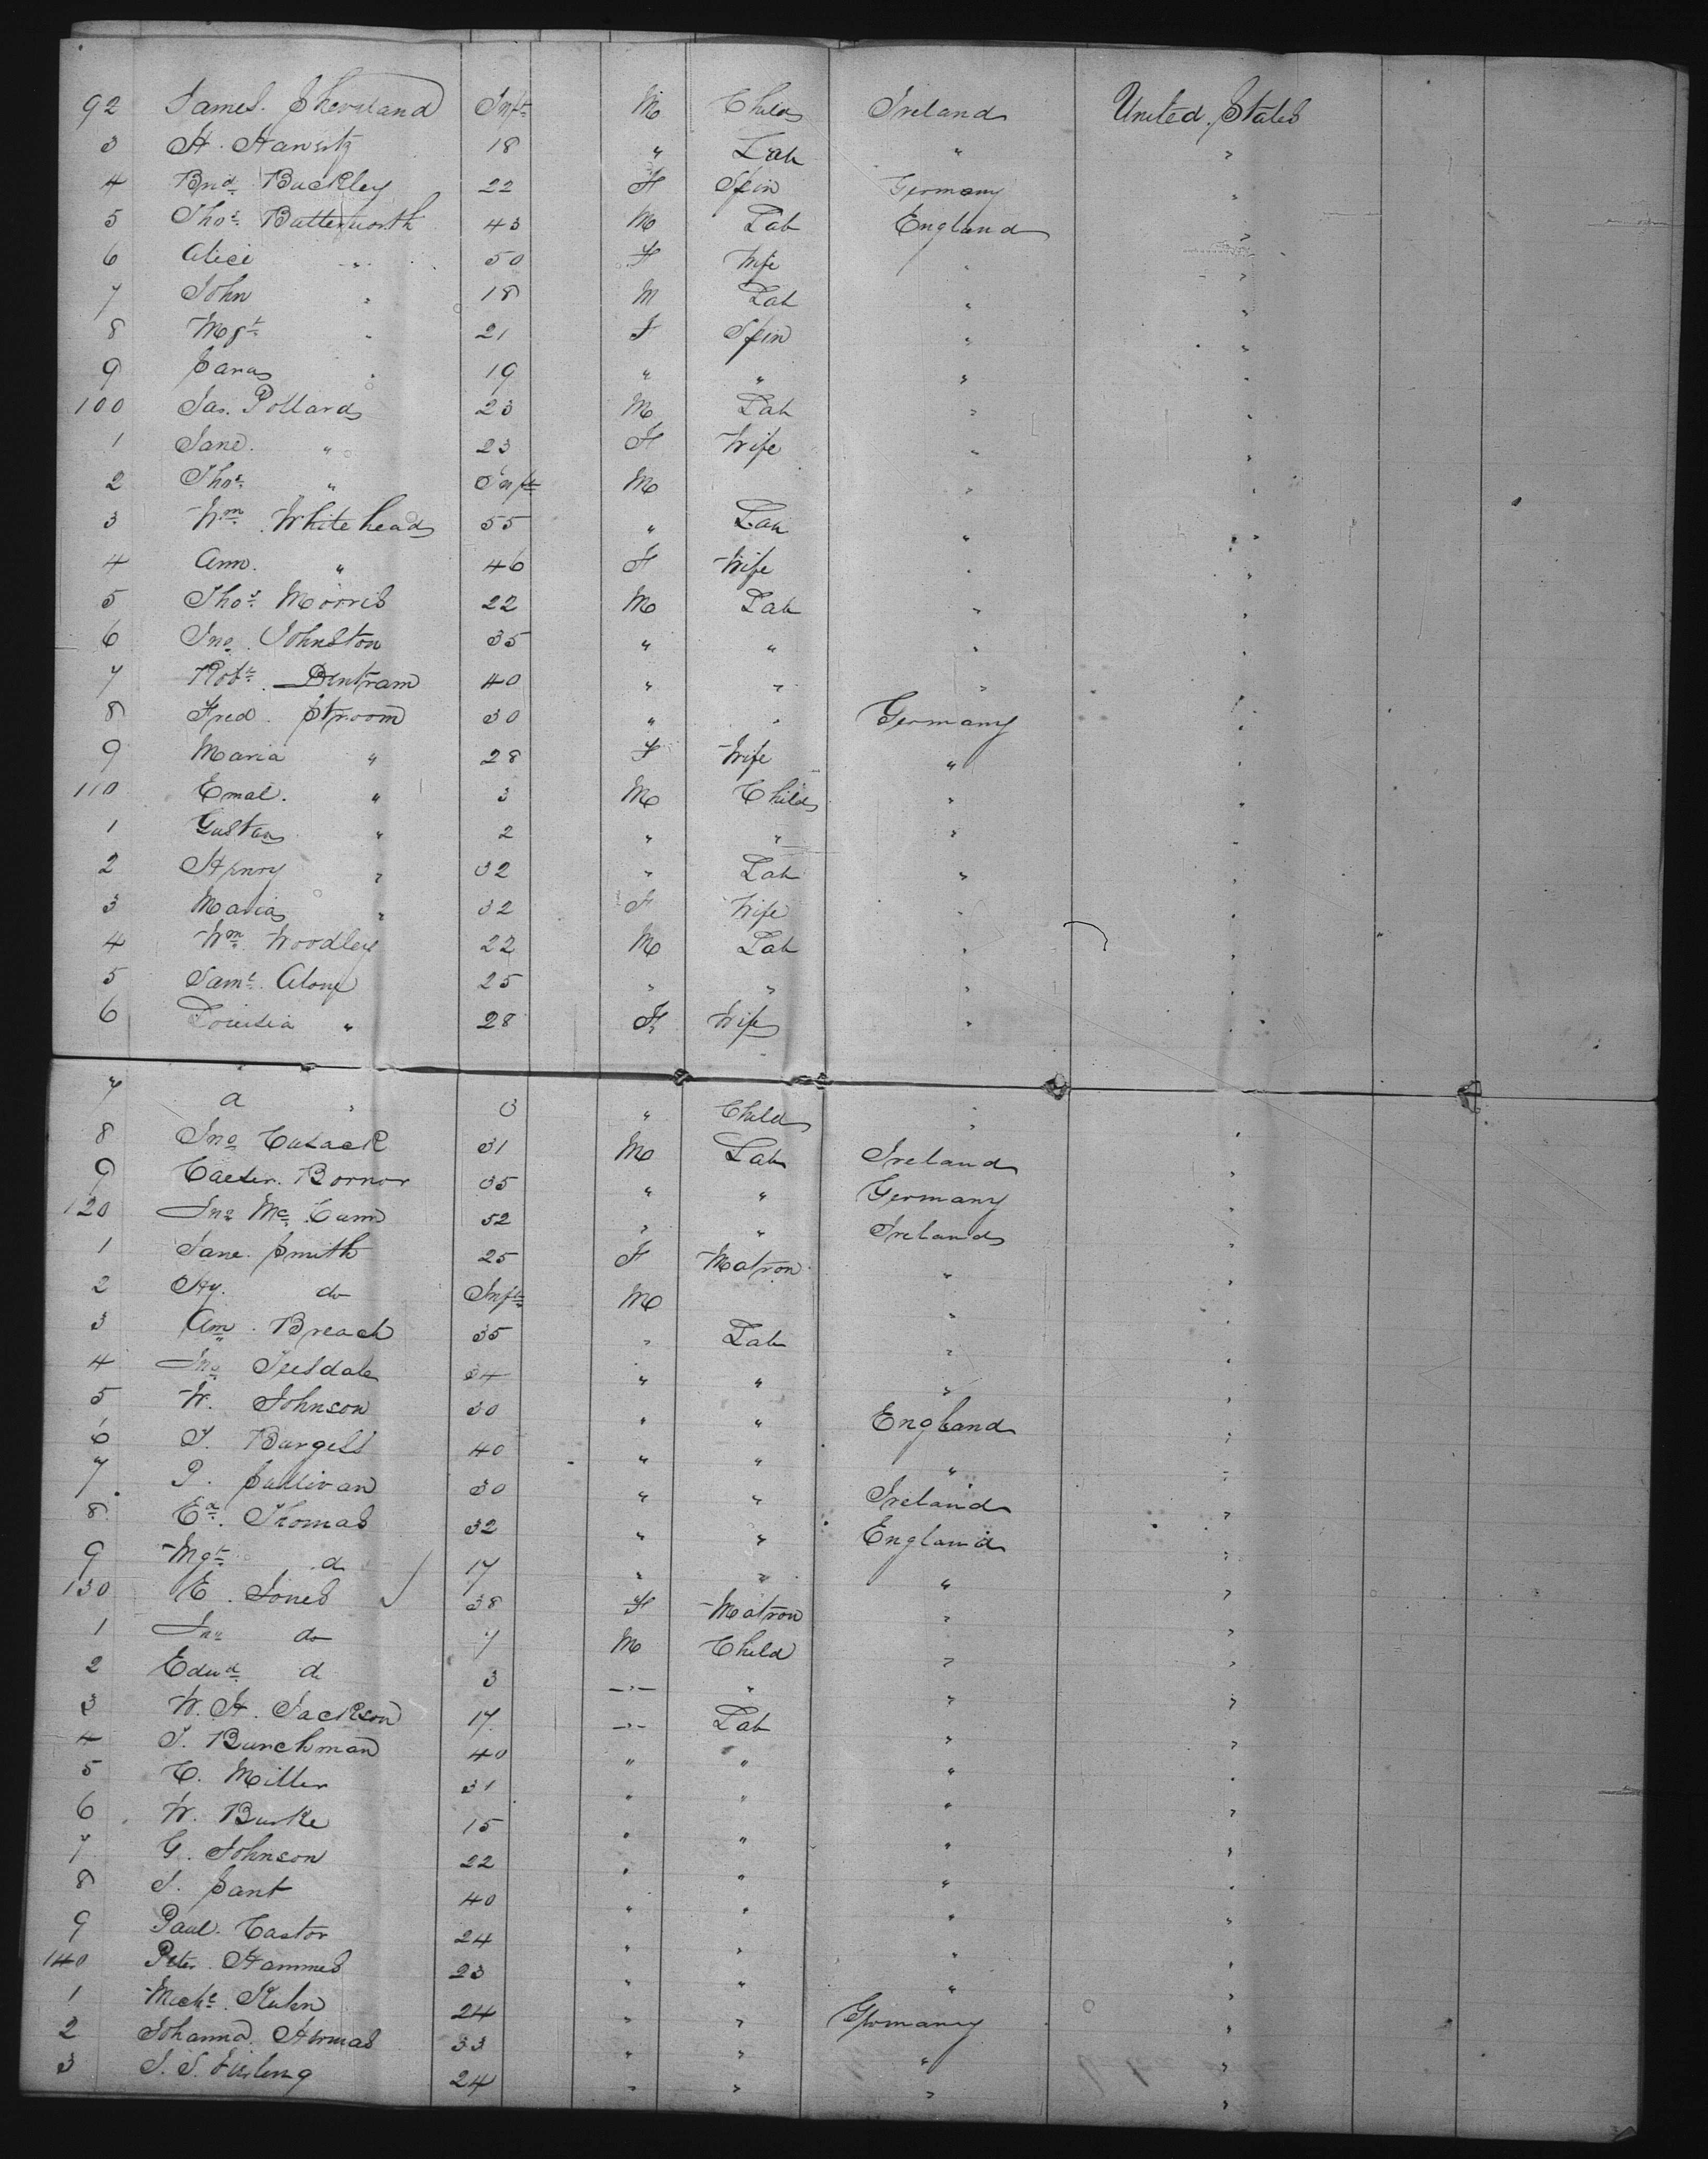 92 James. Inft M Child Ireland United States
3 H. 18 " Lab " "
4 Brid Buckley 22 F Spin Germany "
5 Thos Butterworth 43 M Lab England "
6 Alice " 50 F Wife " "
7 John " 18 M Lab " "
8 Mgt " 21 F Spin " "
9 Sara " 19 " " " "
100 Jas. Pollard 23 M Lab " "
1 Jane. " 23 F Wife " "
2 Thos " Inft M " "
3 Wm Whitehead 55 " Lab " "
4 Ann. " 46 F Wife " "
5 Thos Morris 22 M Lab " "
6 Jno Johnston 35 " " " "
7 Robt 40 " " " "
8 Fred. Stroom 30 " " Germany "
9 Maria " 28 F Wife " "
110 Emal. " 3 M Child " "
1 Gustav " 2 " " " "
2 Henry " 32 " Lab " "
3 Maria " 32 F Wife " "
4 Wm Woodley 22 M Lab " "
5 Saml 25 " " " "
6 Louisia " 28 F Wife " "
7 a " 3 " Child " "
8 Jno Cusack 31 M Lab Ireland "
9 Bornor 35 " " Germany "
120 Jno Mc Cann 52 " " Ireland "
1 Jane. Smith 25 F Matron " "
2 Hy. do Inft M " "
3 Am. Breach 35 " Lab " "
4 Jno Teesdale 24 " " " "
5 W. Johnson 30 " " England "
6 T. Burgess 40 " " " "
7 P. Sullivan 30 " " Ireland "
8 Thomas 32 " " England "
9 Mgt do 17 " " " "
130 E. Jones 38 F Matron " "
1 do 7 M Child " "
2 Edwd do 3 -"- " " "
3 W. H. Jackson 17 -"- Lab " "
4 T. Bunchman 40 " " " "
5 C. Miller 31 " " " "
6 W. Burke 15 " " " "
7 G. Johnson 22 " " " "
8 J. Sant 40 " " " "
9 Paul. Castor 24 " " " "
140 Peter. Hammes 23 " " " "
1 Michl. Kuhn 24 " " Germany "
2 Johanna. 33 " " " "
3 24 " " " "